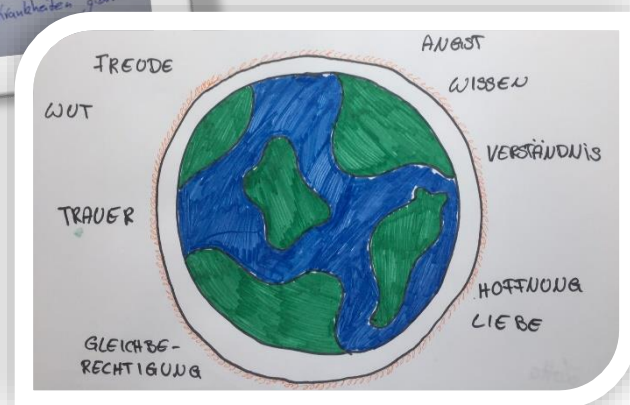 Krankheiten
FREUDE
WUT
TRAUER
GLEICHBE-
RECHTIGUNG
ANGST
WISSEN
VERSTÄNDNIS
HOFFNUNG
LIEBE